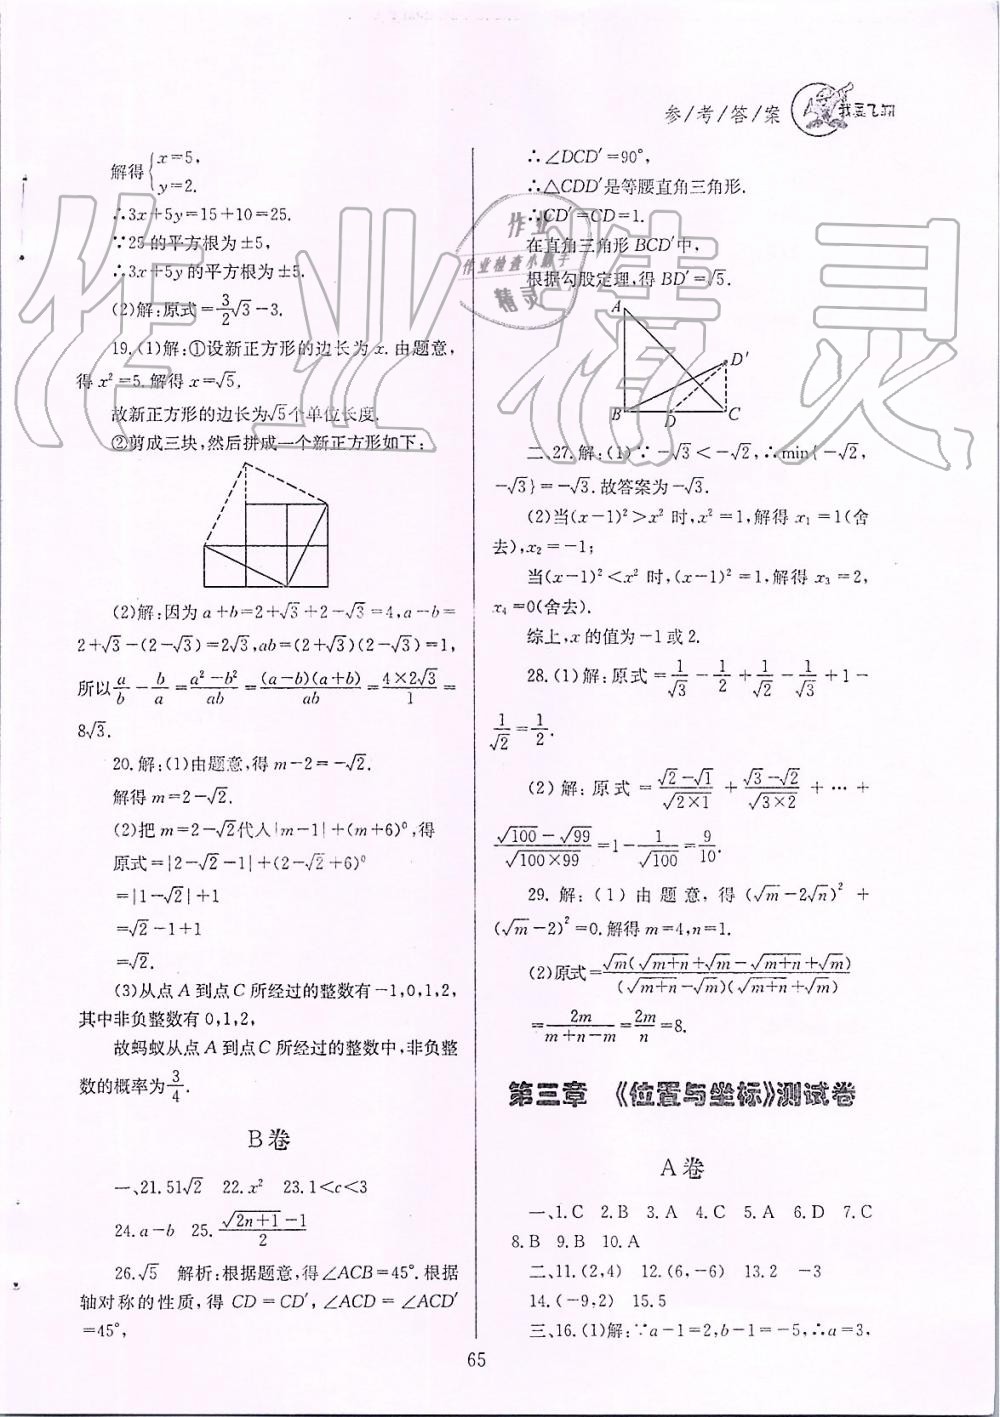 参/考/答/案
我要飞翔
解得{x=5,
y=2.
∴3x+5y=15+10=25.
∵25的平方根为±5,
∴3x+5y的平方根为±5.
(2)解:原式=3/2√3-3.
19.(1)解:①设新正方形的边长为x.由题意,
得x²=5.解得x=√5,
故新正方形的边长为√5个单位长度.
②剪成三块,然后拼成一个新正方形如下:
(2)解:因为a+b=2+√3+2-√3=4,a-b=
2+√3-(2-√3)=2√3,ab=(2+√3)(2-√3)=1,
所以a/b-b/a=(a²-b²)/ab=(a-b)(a+b)/ab=(4×2√3)/1=
8√3.
20.解:(1)由题意,得m-2=-√2.
解得m=2-√2.
(2)把m=2-√2代人|m-1|+(m+6)⁰,得
原式=|2-√2-1|+(2-√2+6)⁰
=|1-√2|+1
=√2-1+1
=√2.
(3)从点A到点C所经过的整数有-1,0,1,2,
其中非负整数有0,1,2,
故蚂蚁从点A到点C所经过的整数中,非负整
数的概率为3/4.
B卷
一、21.51√2 22.x² 23.1<c<3
24.a-b 25.(√(2n+1)-1)/2
26.√5 解析:根据题意,得∠ACB=45°.根据
轴对称的性质,得CD=CD′,∠ACD=∠ACD′
=45°,
∴∠DCD′=90°,
∴△CDD′是等腰直角三角形.
∴CD′=CD=1.
在直角三角形BCD′中,
根据勾股定理,得BD′=√5.
A
D′
B D C
二、27.解:(1)∵-√3<-√2,∴min{-√2,
-√3}=-√3.故答案为-√3.
(2)当(x-1)²>x²时,x²=1,解得x₁=1(舍
去),x₂=-1;
当(x-1)²<x²时,(x-1)²=1,解得x₃=2,
x₄=0(舍去).
综上,x的值为-1或2.
28.(1)解:原式=1/√3-1/2+1/√2-1/√3+1-
1/√2=1/2.
(2)解:原式=(√2-√1)/√(2×1)+(√3-√2)/√(3×2)+…+
(√100-√99)/√(100×99)=1-1/√100=9/10.
29.解:(1)由题意,得(√m-2√n)²+
(√m-2)²=0.解得m=4,n=1.
(2)原式=√m(√(m+n)+√m-√(m+n)+√m)/(√(m+n)-√m)(√(m+n)+√m)
=2m/(m+n-m)=2m/n=8.
第三章 《位置与坐标》测试卷
A卷
一、1.C 2.B 3.A 4.C 5.A 6.D 7.C
8.B 9.B 10.A
二、11.(2,4) 12.(6,-6) 13.2 -3
14.(-9,2) 15.5
三、16.(1)解:∵a-1=2,b-1=-5,∴a=3,
65
作业精灵
作业
作业检查小助手
精灵